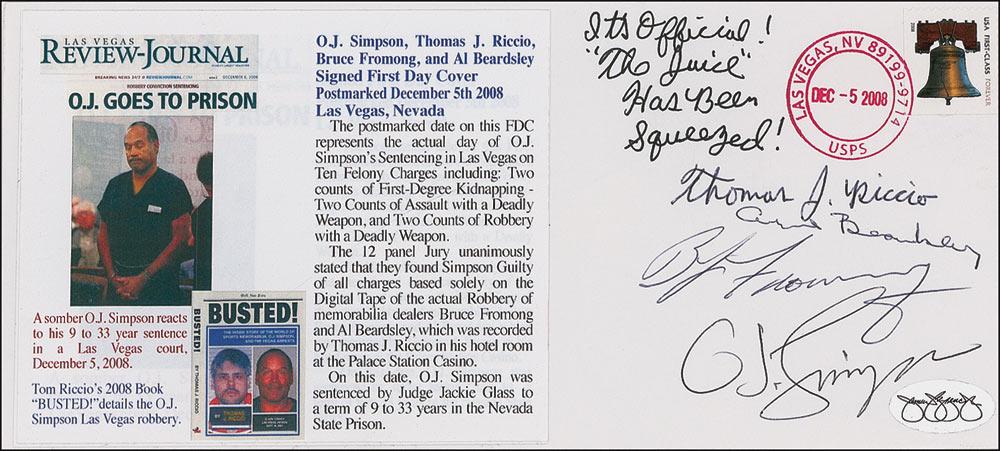 LAS VEGAS
REVIEW-JOURNAL
BREAKING NEWS 24/7 @ REVIEWJOURNAL.COM DECEMBER 6, 2008
ROBBERY CONVICTION SENTENCING
O.J. GOES TO PRISON
A somber O.J. Simpson reacts
to his 9 to 33 year sentence
in a Las Vegas court,
December 5, 2008.
Tom Riccio's 2008 Book
"BUSTED!"details the O.J.
Simpson Las Vegas robbery.
BUSTED!
BY THOMAS J. RICCIO
BUSTED!
THE INSIDE STORY OF THE WORLD OF
SPORTS MEMORABILIA, O.J. SIMPSON,
AND THE VEGAS ARRESTS
BY THOMAS
J. RICCIO
O.J. Simpson, Thomas J. Riccio,
Bruce Fromong, and Al Beardsley
Signed First Day Cover
Postmarked December 5th 2008
Las Vegas, Nevada
The postmarked date on this FDC
represents the actual day of O.J.
Simpson's Sentencing in Las Vegas on
Ten Felony Charges including: Two
counts of First-Degree Kidnapping -
Two Counts of Assault with a Deadly
Weapon, and Two Counts of Robbery
with a Deadly Weapon.
The 12 panel Jury unanimously
stated that they found Simpson Guilty
of all charges based solely on the
Digital Tape of the actual Robbery of
memorabilia dealers Bruce Fromong
and Al Beardsley, which was recorded
by Thomas J. Riccio in his hotel room
at the Palace Station Casino.
On this date, O.J. Simpson was
sentenced by Judge Jackie Glass to
a term of 9 to 33 years in the Nevada
State Prison.
Its Official!
"The Juice"
Has Been
Squeezed!
LAS VEGAS, NV 89199-9714
DEC -5 2008
USPS
2008
USA FIRST-CLASS
FOREVER
Thomas J. Riccio
Beardsley
Fromong
O.J. Simpson